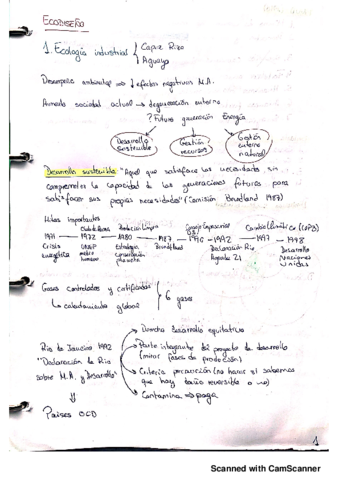 ECODISEÑO
1. Ecología industrial { Capuz Rizo
Aguayo
Desempeño ambiental => ↓ efectos negativos M.A.
Aumento sociedad actual → degeneración entorno
? Futura generación Energía
Desarrollo sostenible
Gestión recursos
Gestión entorno natural
Desarrollo sostenible "Aquel que satisface las necesidades sin
comprometer la capacidad de las generaciones futuras para
satisfacer sus propias necesidades" (Comisión 1987)
Hitos importantes
1972 → 1980 → 1987 → 1992 → 1997 → 1998
Crisis energética
medio humano
Estrategia conservación
Declaración Río
Agenda 21
Desarrollo Naciones Unidas
Gases controlados y certificados } 6 gases
↳ calentamiento global
Río de Janeiro 1992
"Declaración de Río
sobre M.A. y Desarrollo"
Derecho desarrollo equitativo
Parte integrante del proyecto de desarrollo
(mirar fases de producción)
Criterio precaución (no hacer si sabemos
que hay daño reversible o no)
Contamina => paga
Países OCD
1
Scanned with CamScanner